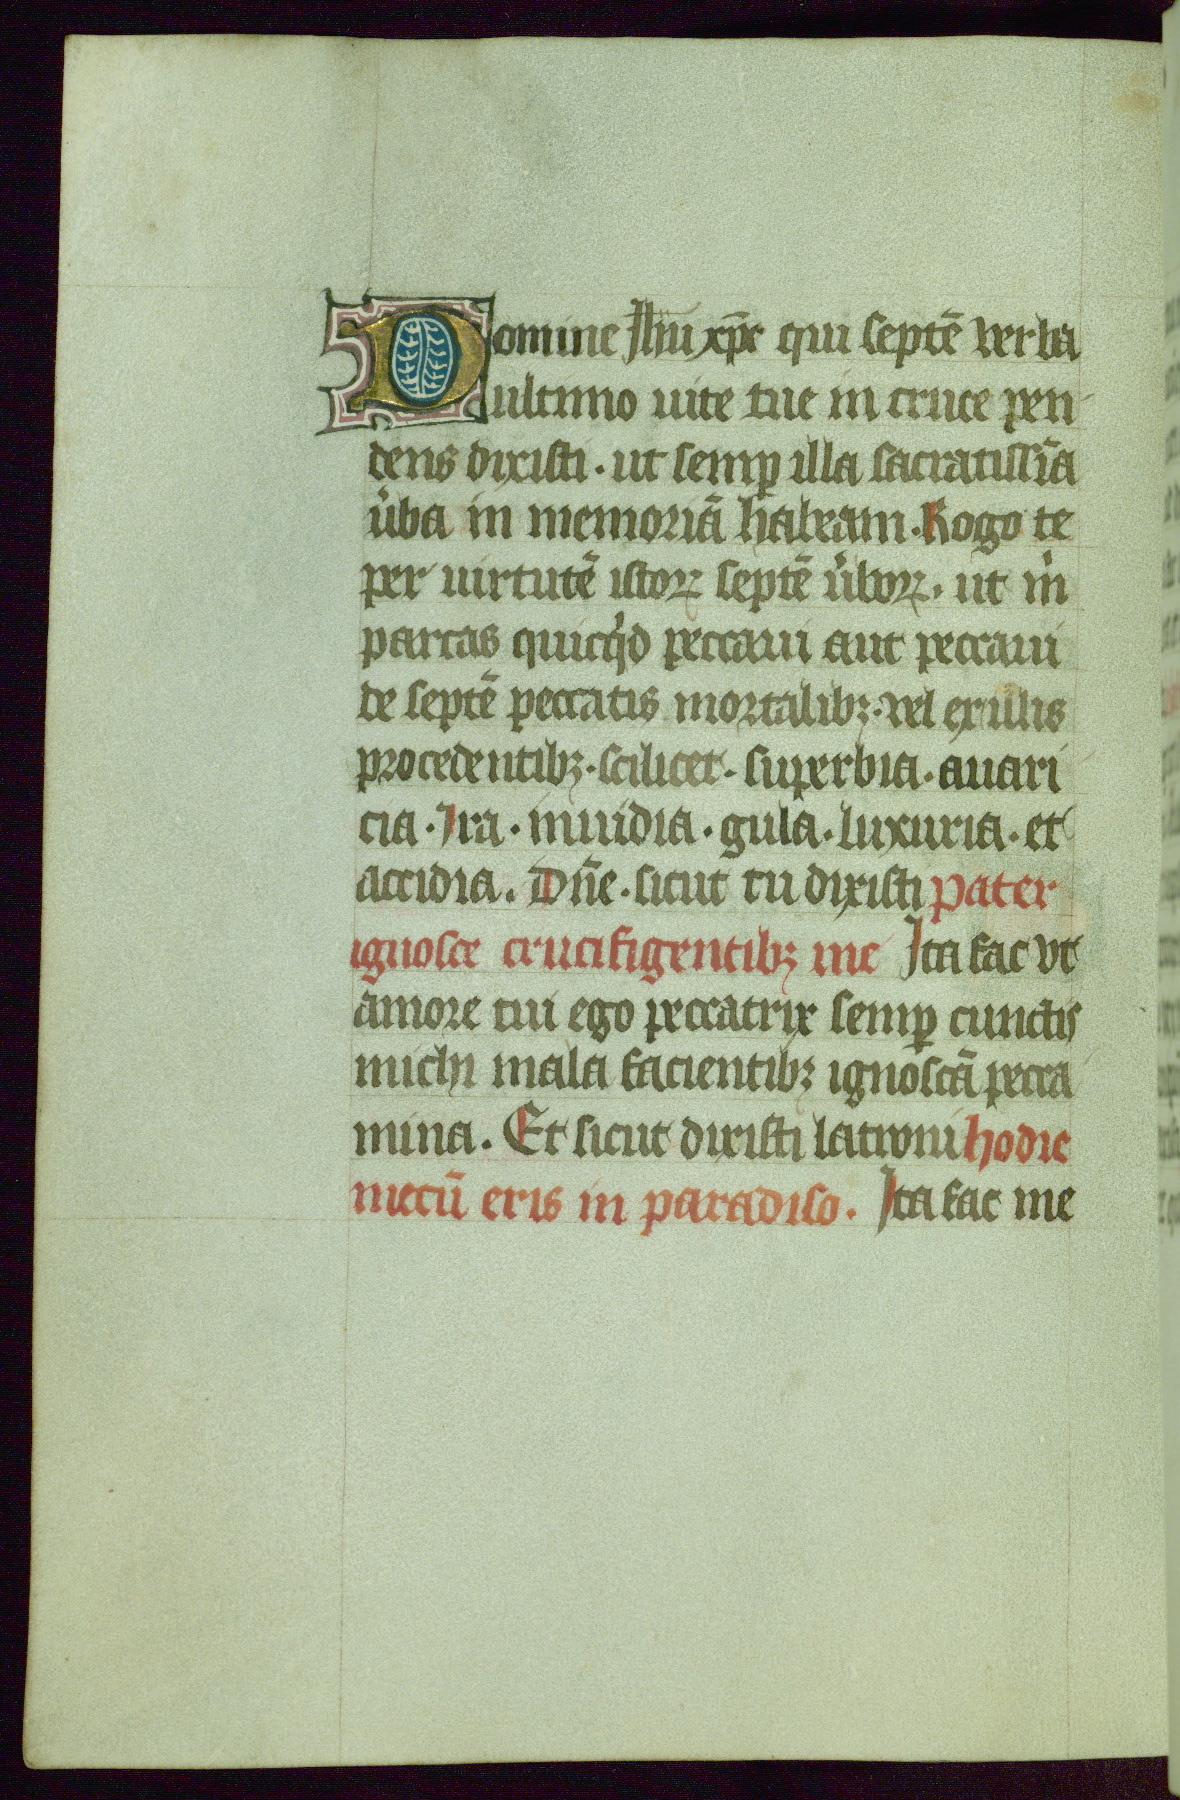 Domine Jhu xp̄e qui septē verba
ultimo uite tue in cruce pen
dens dixisti. ut semꝑ illa sacratissīa
u̓ba in memoriā habeam. Rogo te
per uirtutē istoꝝ septē u̓boꝝ. ut m̓
parcas quicq̓d peccaui aut peccaui
de septē peccatis mortalibꝫ. vel ex illis
procedentibꝫ. scilicet. superbia. auari
cia. Ira. inuidia. gula. luxuria. et
accidia. Dn̄e. sicut tu dixisti pater
ignosce crucifigentibꝫ me Ita fac vt
amore tui ego peccatrix semꝑ cunctis
michi mala facientibꝫ ignoscā pecca
mina. Et sicut dixisti latroni hodie
mecū eris in paradiso. Ita fac me